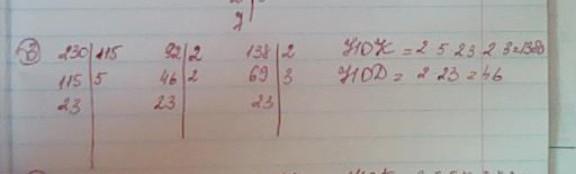 2 230|115 92|2 138|2 НОК = 2 5 23 2 3 = 1380
115|5 46|2 69|3 НОД = 2 23 = 46
23 23 23